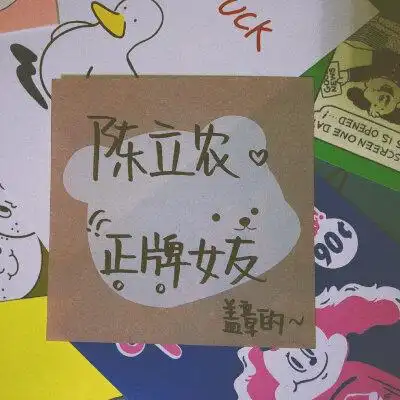 UCK
GOOD NEWS
SCREEN ONE DA
IS OPENED
陈立农♡
正牌女友
盖章的~
90¢